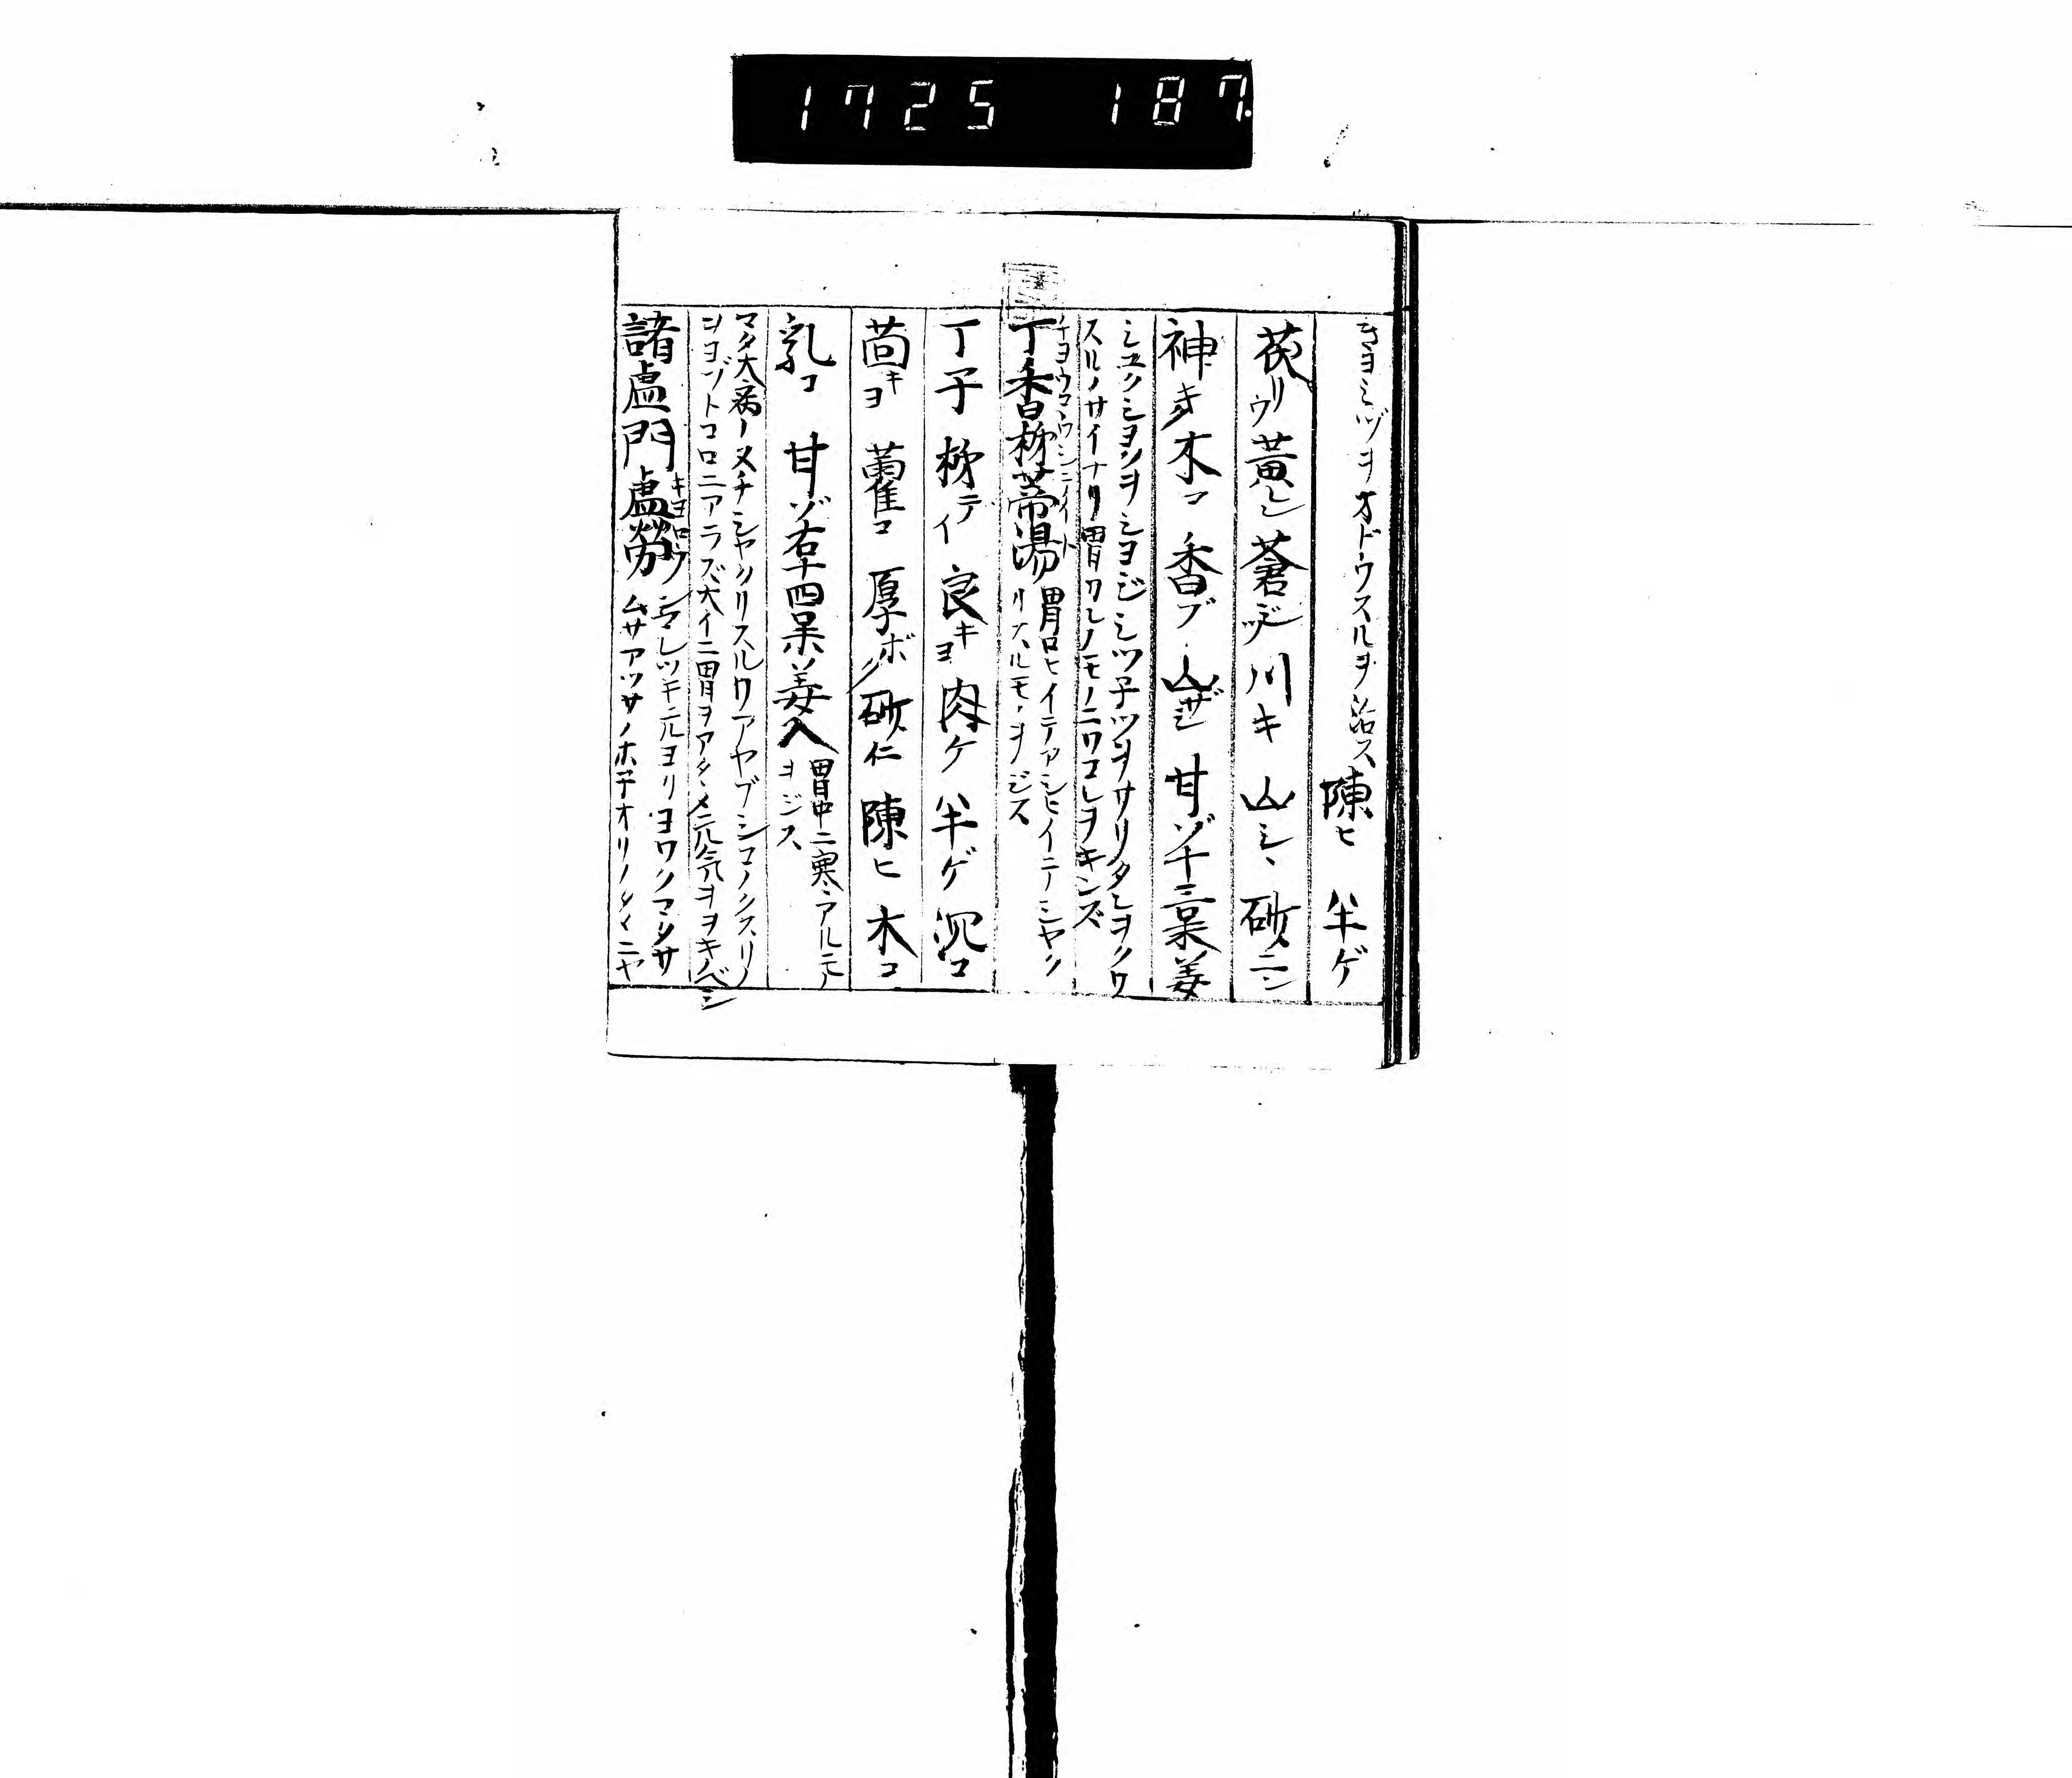 1725 187.
キヨミヅヲオドウスルヲ治ス 陳ヒ 半ゲ
茯リウ 黄レン 蒼ジツ 川キ 山シ、 砂ニン
神キク 木コ 香ブ 山ザシ 甘ゾ 十三味 姜
シヨジミツ子ツヲサリタンヲ
スルノサイナリ胃カンノモノニワコレヲキンズ
丁香柿蔕湯
胃口ヒイテアシヒイニテシヤク
リスルモノヲジス
丁子 柿テイ 良キヨ 肉ケ 半ゲ 沉コ
茴キヨ 藿コ 厚ボク 砂仁 陳ヒ 木コ
乳コ 甘ゾ 右十四味姜入
胃中ニ寒アルモノ
ヲジス
マタ大病ノヌチシヤクリスルワアヤブシコノクスリノ
ヲヨブトコロニアラズ大イニ胃ヲアタヽメ元気ヲヲキノベシ
諸虚門 虚勞
キヨロウ
ウマレツキ元ヨリヨワク